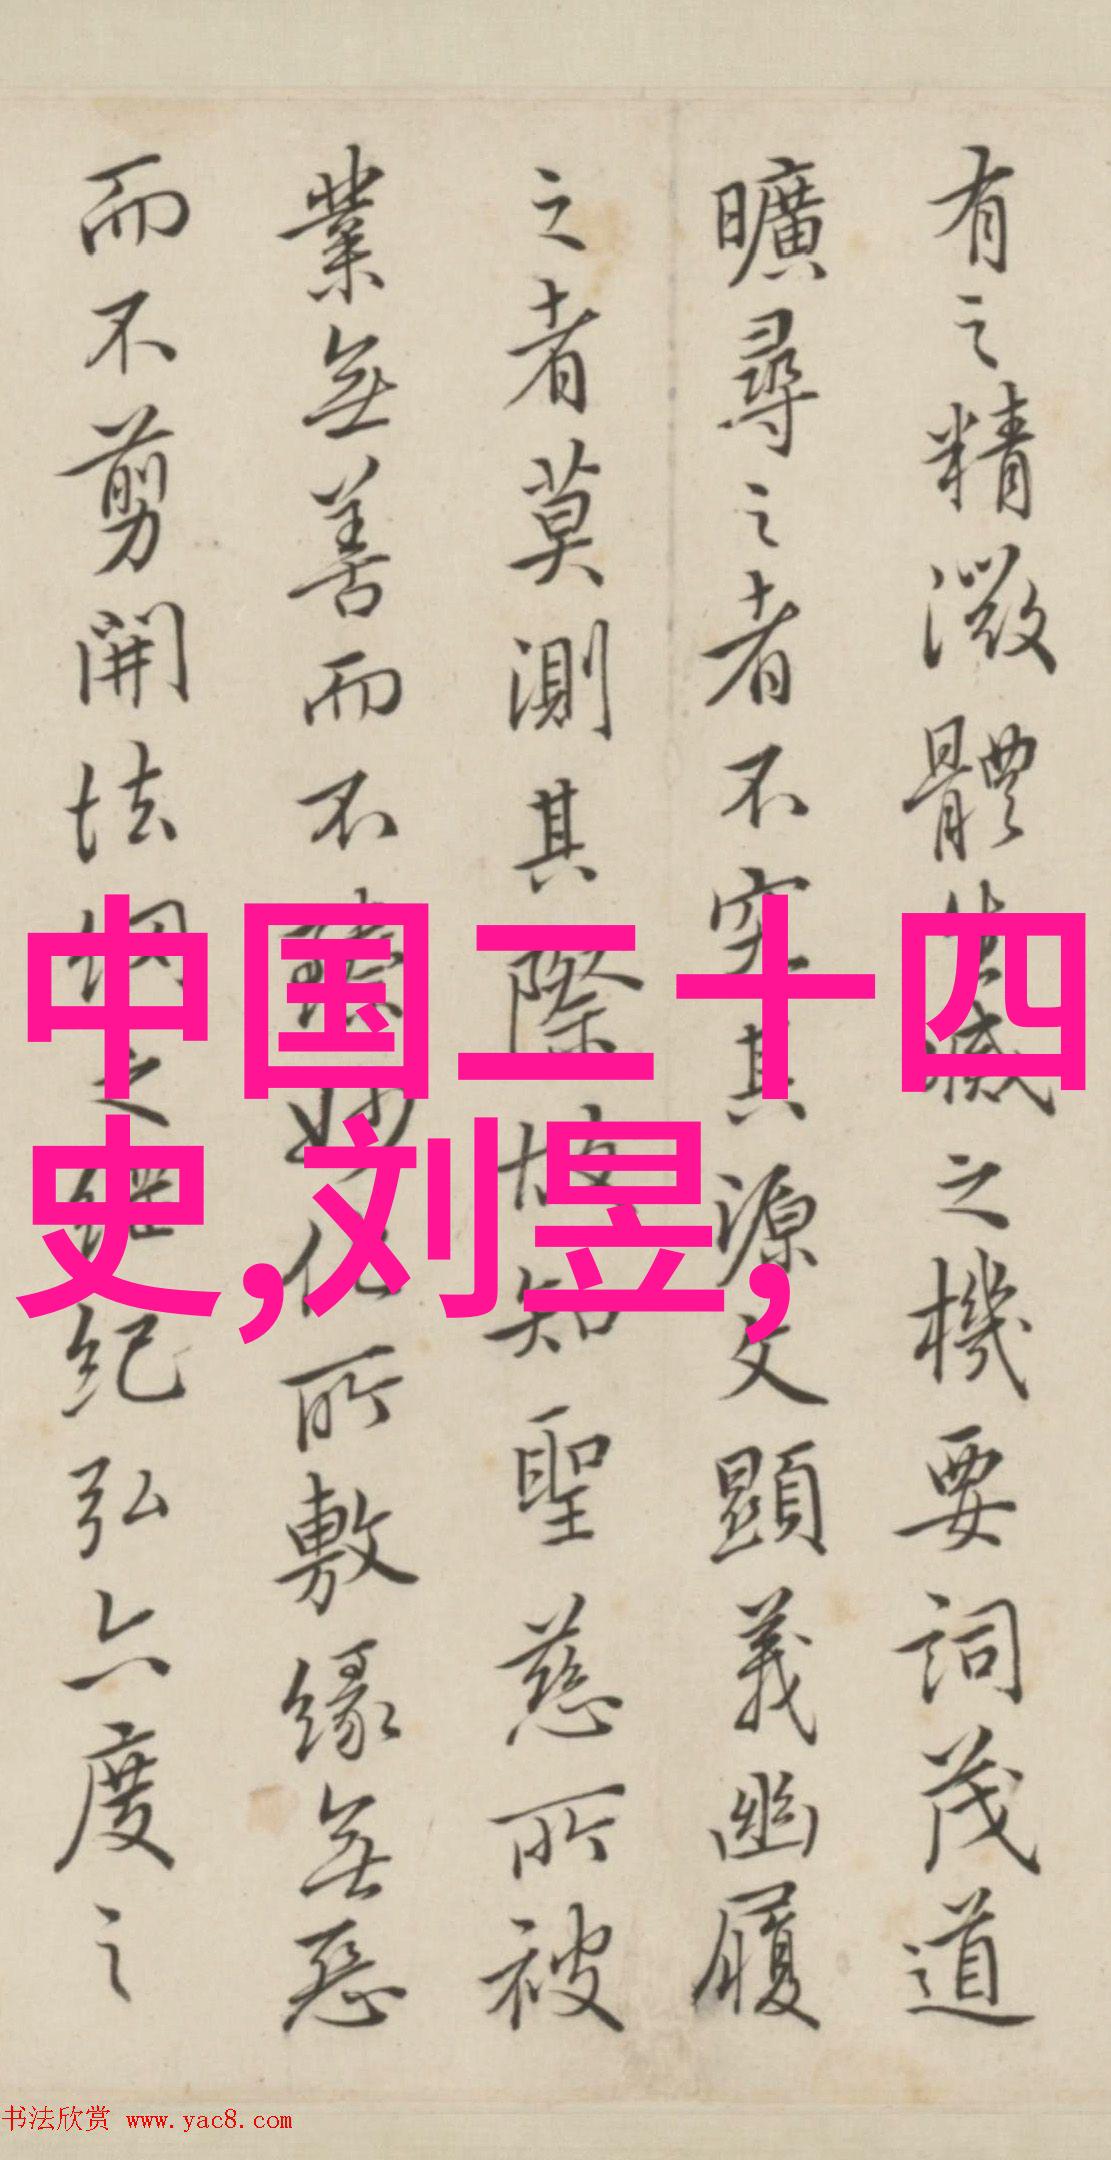 有之精微體生滅之機要詞茂道
曠尋之者不究其源文顯義幽履
之者莫測其際故知聖慈所被
業無善而不臻妙化所敷緣無惡
而不剪開法網之綱紀弘六度之
中国二十四
史,刘昱,
书法欣赏 www.yac8.com